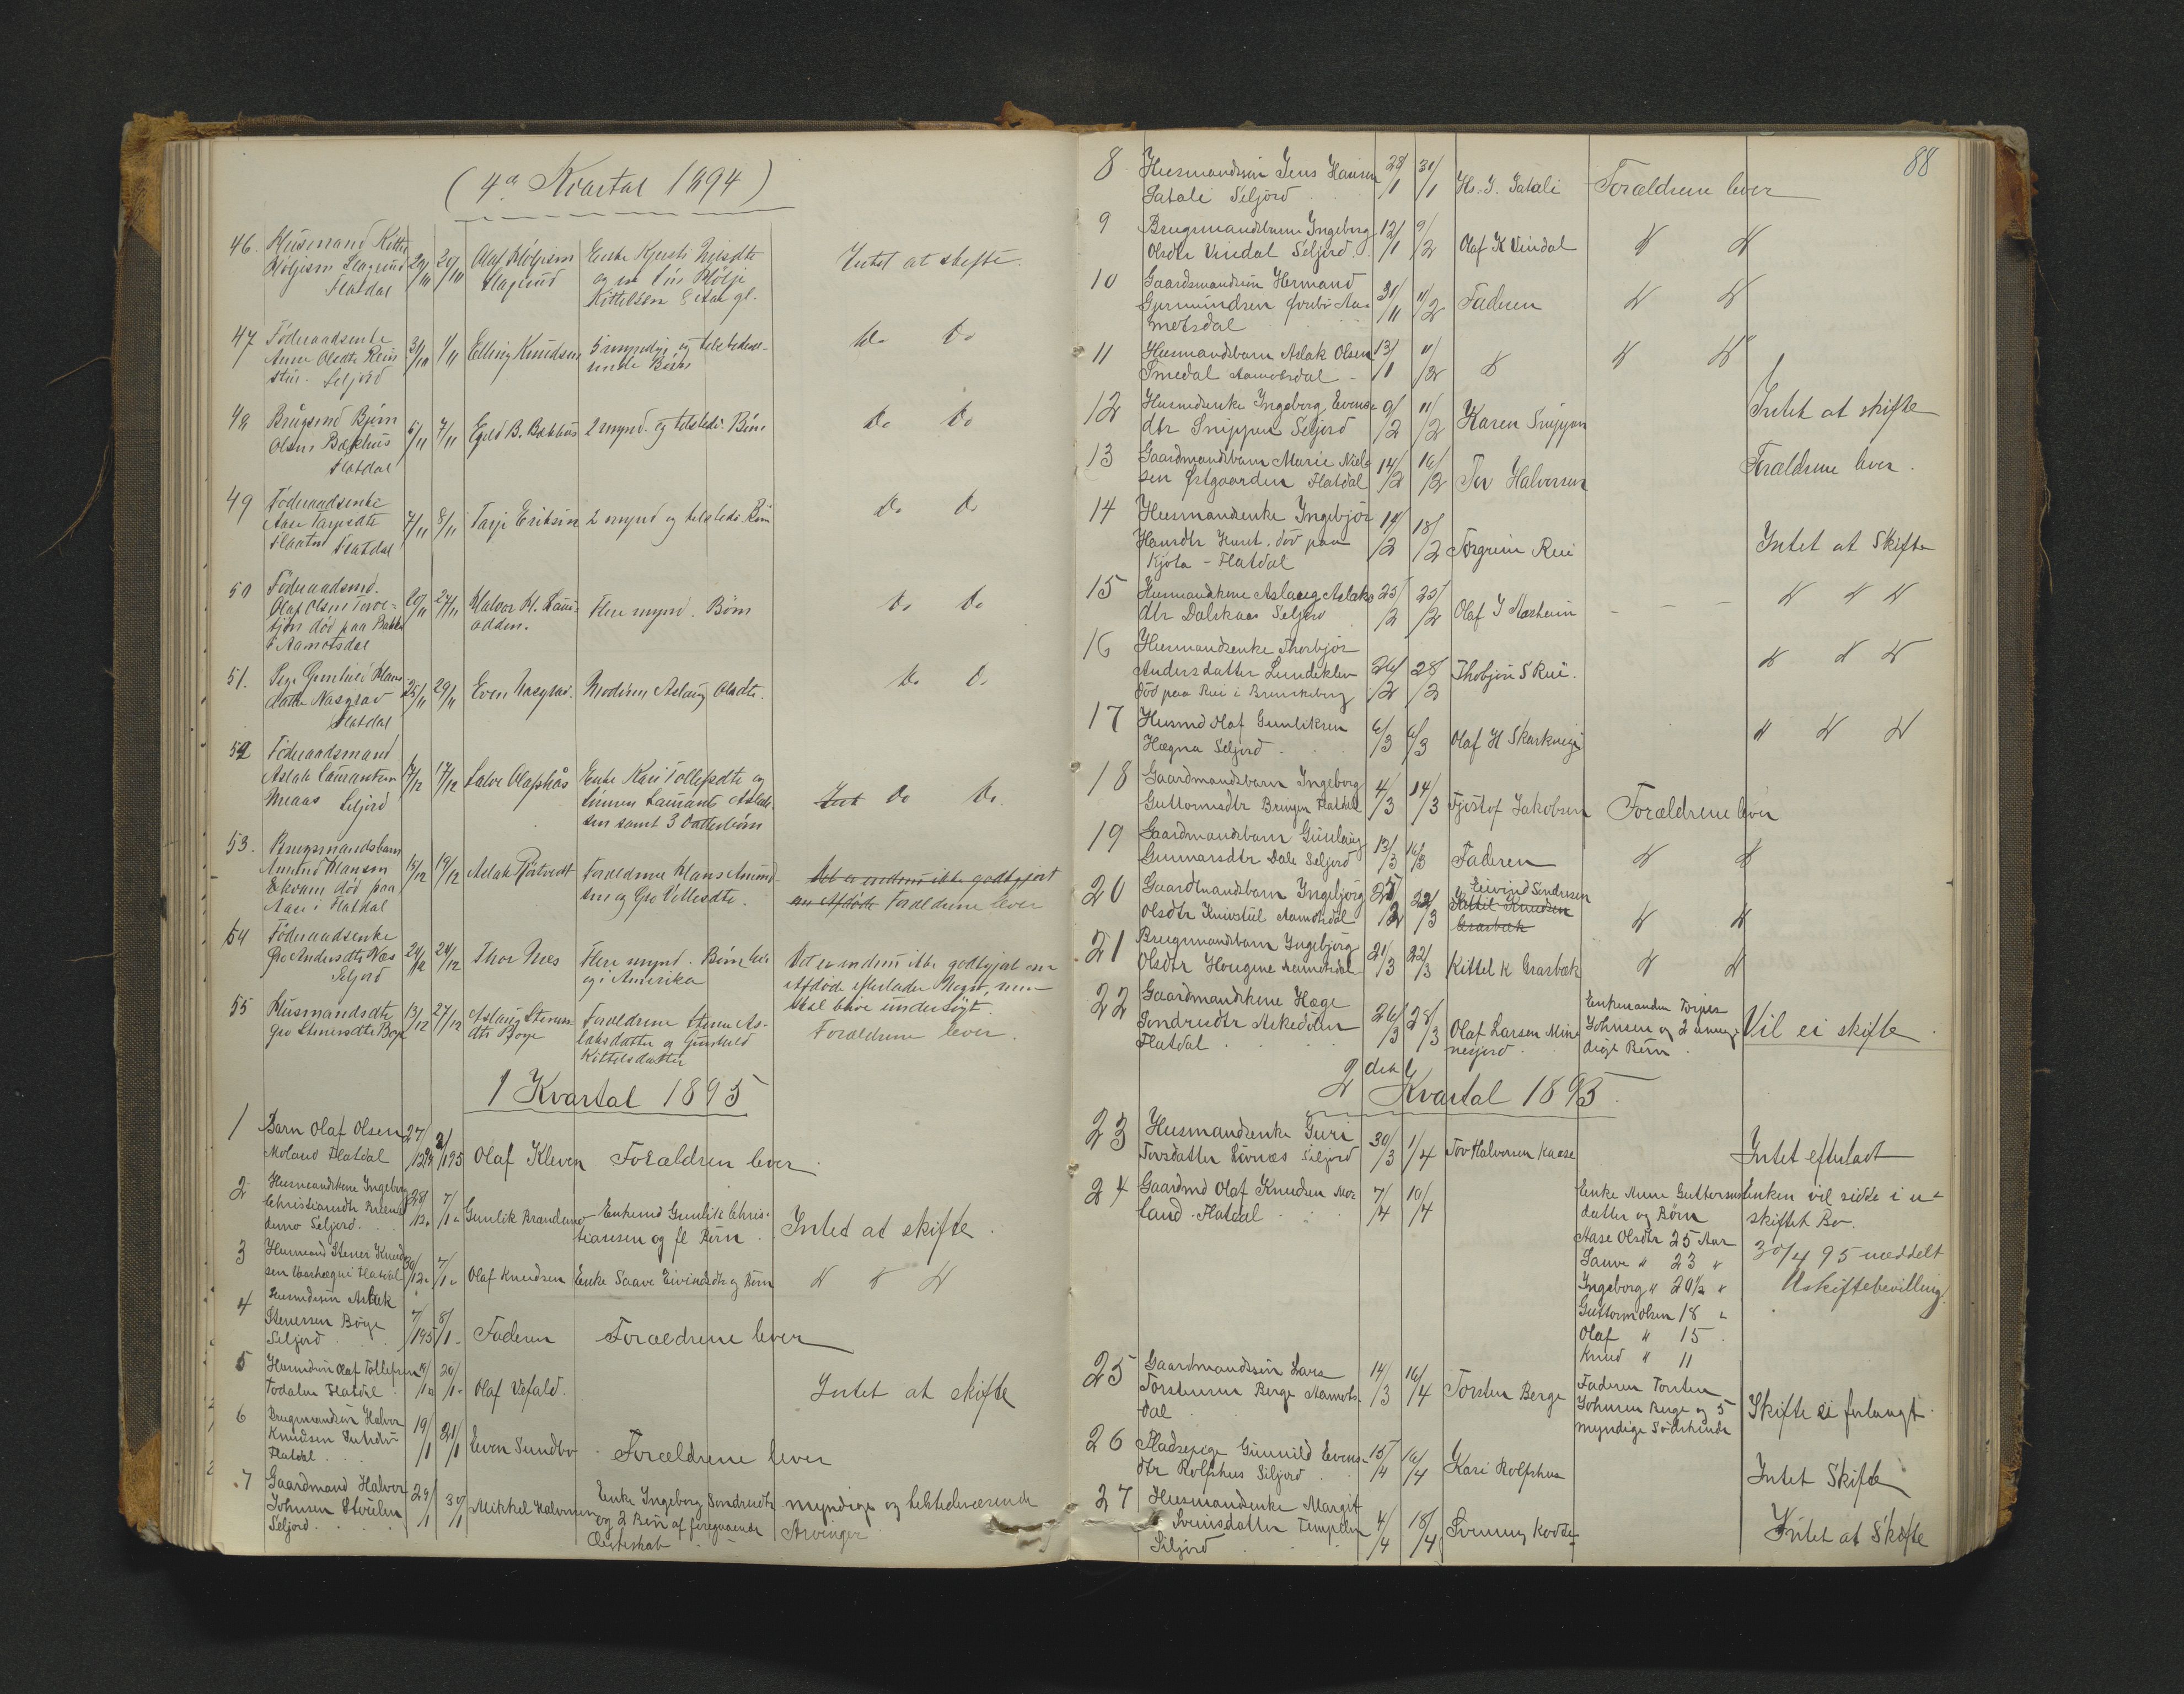 (4de Kvartal 1894)
46. Husmand Kittil
Höljesen Slagrud
Flatdal
29/10 29/10 Olaf Höljesen
Slagrud
Enke Kjersti Nilsdtr
og en Sön Hölje
Kittelsen 8 Aar gl.
Intet at skifte.
47 Föderaadsenke
Anne Olsdtr Rein
Seljord
31/10 1/11 Elling Knudsen
5 myndige og tilstedevæ-
rende Börn
Do Do
48 Brugsmd Björn
Olsen Bakhus
Flatdal
6/11 7/11 Egild B. Bakhus
2 mynd. og tilstede. Börn
Do Do
49 Föderaadsenke
Aase Tarjesdtr
Slaatta Flatdal
7/11 8/11 Tarje Eriksen
2 mynd og tilstede Börn
Do Do
50 Föderaadsmd.
Olaf Olsen
tjön död paa Bakka
i Aamotsdal
20/11 27/11 Halvor H.
Flere mynd. Börn
Do Do
51. Pige Gunhild Hans
datter Nasgrav
Flatdal
25/11 29/11 Even Nasgrav.
Moderen Aslaug Olsdtr.
Do Do
52 Föderaadsmand
Aslak Laurantsen
Meaas Seljord
17/12 Salve Olafshås
Enke Kari Tollefsdtr og
Sönnen Laurants Aslak-
sen samt 3 Datterbörn
Do Do.
53. Brugsmandsbarn
Amund Hansen
Ekvam död paa
Aase i Flatdal
15/12 19/12 Aslak Hjortvedt
Forældrene Hans Amund-
sen og Gro Villesdtr.
Det er endnu ikke godtgjort
om Afdöde Forældrene lever
54 Föderaadsenke
Gro Andersdtr Næs
Seljord
24/12 24/12 Thor Næs
Flere mynd. Börn her
og i Amerika
Det er endnu ikke godtgjort om
Afdöde efterlader Noget, men
skal blive undersögt.
55 Husmandsdtr
Gro Stenersdtr Böge
13/12 27/12 Aslaug Steners-
dtr Böge
Forældrene Stener As-
laksdatter og Gunhild
Kittelsdatter
Forældrene lever.
1 Kvartal 1895
1 Barn Olaf Olsen
Moland Flatdal
27/12 94 2/1 95 Olaf Kleven Forældren lever.
2 Husmandskone Ingeborg
Christiansdtr Brænd
demo Seljord.
28/12 7/1 Gunlik Brandemo
Enkemd Gunlik Chris-
tiansen og fl Börn.
Intet at skifte.
3 Husmand Stener Knud
sen Flatdal
30/12 7/1 Olaf Knudsen Enke Saave Eivindsdtr og Börn
" " "
4 Husmdssön Aslak
Stenersen Böge
Seljord
7/1 95 8/1 Faderen Forældrene lever
5 Husmdssön Olaf Tollefsen
Todalen Flatdal
20/1 Olaf Vefald.
Intet at skifte
6 Brugsmandssön Halvor
Knudsen
Flatdal
19/1 21/1 Even Sundbö Forældrene lever
7 Gaardmand Halvor
Johnsen Stöilen
Seljord
29/1 30/1 Mikkel Halvorsen
Enke Ingeborg Sondresdtr
og 2 Börn af foregaaende
Ægteskab
myndige og tilstedeværende
Arvinger
88
8 Husmandssön Jens Hansen
Jatali Seljord
28/1 31/1 H. J. Jatali Forældrene lever
9 Brugsmandsbarn Ingeborg
Olsdtr Vindal Seljord
12/1 9/2 Olaf K Vindal " "
10 Gaardmandssön Hermand
Gjermundsen Övrebö Aa-
motsdal
11/2 Faderen " "
11 Husmandsbarn Aslak Olsen
Smedal Aamotsdal
13/1 11/2 " " "
12 Husmdsenke Ingeborg Evens-
dtr Snippen Seljord
9/2 11/2 Karen Snippen
Intet at skifte
13 Gaardmandsbarn Marie Niel-
sen Östgaarden Flatdal
14/2 16/2 Tor Halvorsen
Forældrene lever.
14 Husmandsenke Ingebjör
Hansdtr död paa
Kjota - Flatdal
14/2 18/2 Torgrim Rui
Intet at Skifte
15 Husmandkone Aslaug Aslaks
dtr Dalskaas Seljord
23/2 25/2 Olaf J Norheim
" " "
16 Husmandsenke Thorbjör
Andersdatter Lundekleiv
död paa Rui i Brunkeberg
26/2 28/2 Thobjörn S Rui.
" " "
17 Husmd Olaf Gunliksen
Hægna Seljord
6/3 6/3 Olaf H Skarkveigi
" " "
18 Gaardmandsbarn Ingeborg
Guttormsdtr Bringen Flatdal
4/3 14/3 Tjöstof Jakobsen Forældrene lever
19 Gaardmandsbarn Gunlaug
Gunnarsdtr Dale Seljord
13/3 16/3 Faderen " "
20 Gaardmandsbarn Ingebjörg
Olsdtr Knivstul Aamotsdal
25/2 22/3 Eivind Sondresen
Kittil Knudsen
Grasbæk
" "
21 Brugsmandsbarn Ingebjörg
Olsdtr Hougene Aamotsdal
21/3 22/3 Kittel K Grasbæk " "
22 Gaardmandskone Hæge
Sondresdtr Askedalen
Flatdal
26/3 28/3 Olaf Larsen Mine
nesjord
Enkemanden Torjus
Johnsen og 2 umyn-
dige Börn.
Vil ei skifte.
2det Kvartal 1895.
23 Husmandsenke Guri
Torsdatter Livnæs Seljord
30/3 1/4 Tov Halvorsen Kaase
Intet efterladt
24 Gaardmd Olaf Knudsen Mo-
land. Flatdal
7/4 10/4
Enke Anne Guttorms
datter og Börn
Aase Olsdtr 25 Aar
Sauve " 23 "
Ingeborg " 20½ "
Guttorm Olsen 18 "
Olaf " 15
Knud " 11
Enken vil sidde i u-
skiftet Bo.
30/4 95 meddelt
Uskiftebevilling.
25 Gaardmandssön Lars
Torstensen Berge Aamots-
dal
14/3 16/4 Torsten Berge
Faderen Torsten
Johnsen Berge og 5
myndige Södskende
Skifte ei forlangt.
26 Pladsepige Gunnild Evens-
dtr Rolfshus Siljord
15/4 16/4 Kari Rolfshus
Intet Skifte
27 Husmandsenke Margit
Sveinsdatter Templen
Siljord
4/4 18/4
Intet at Skifte